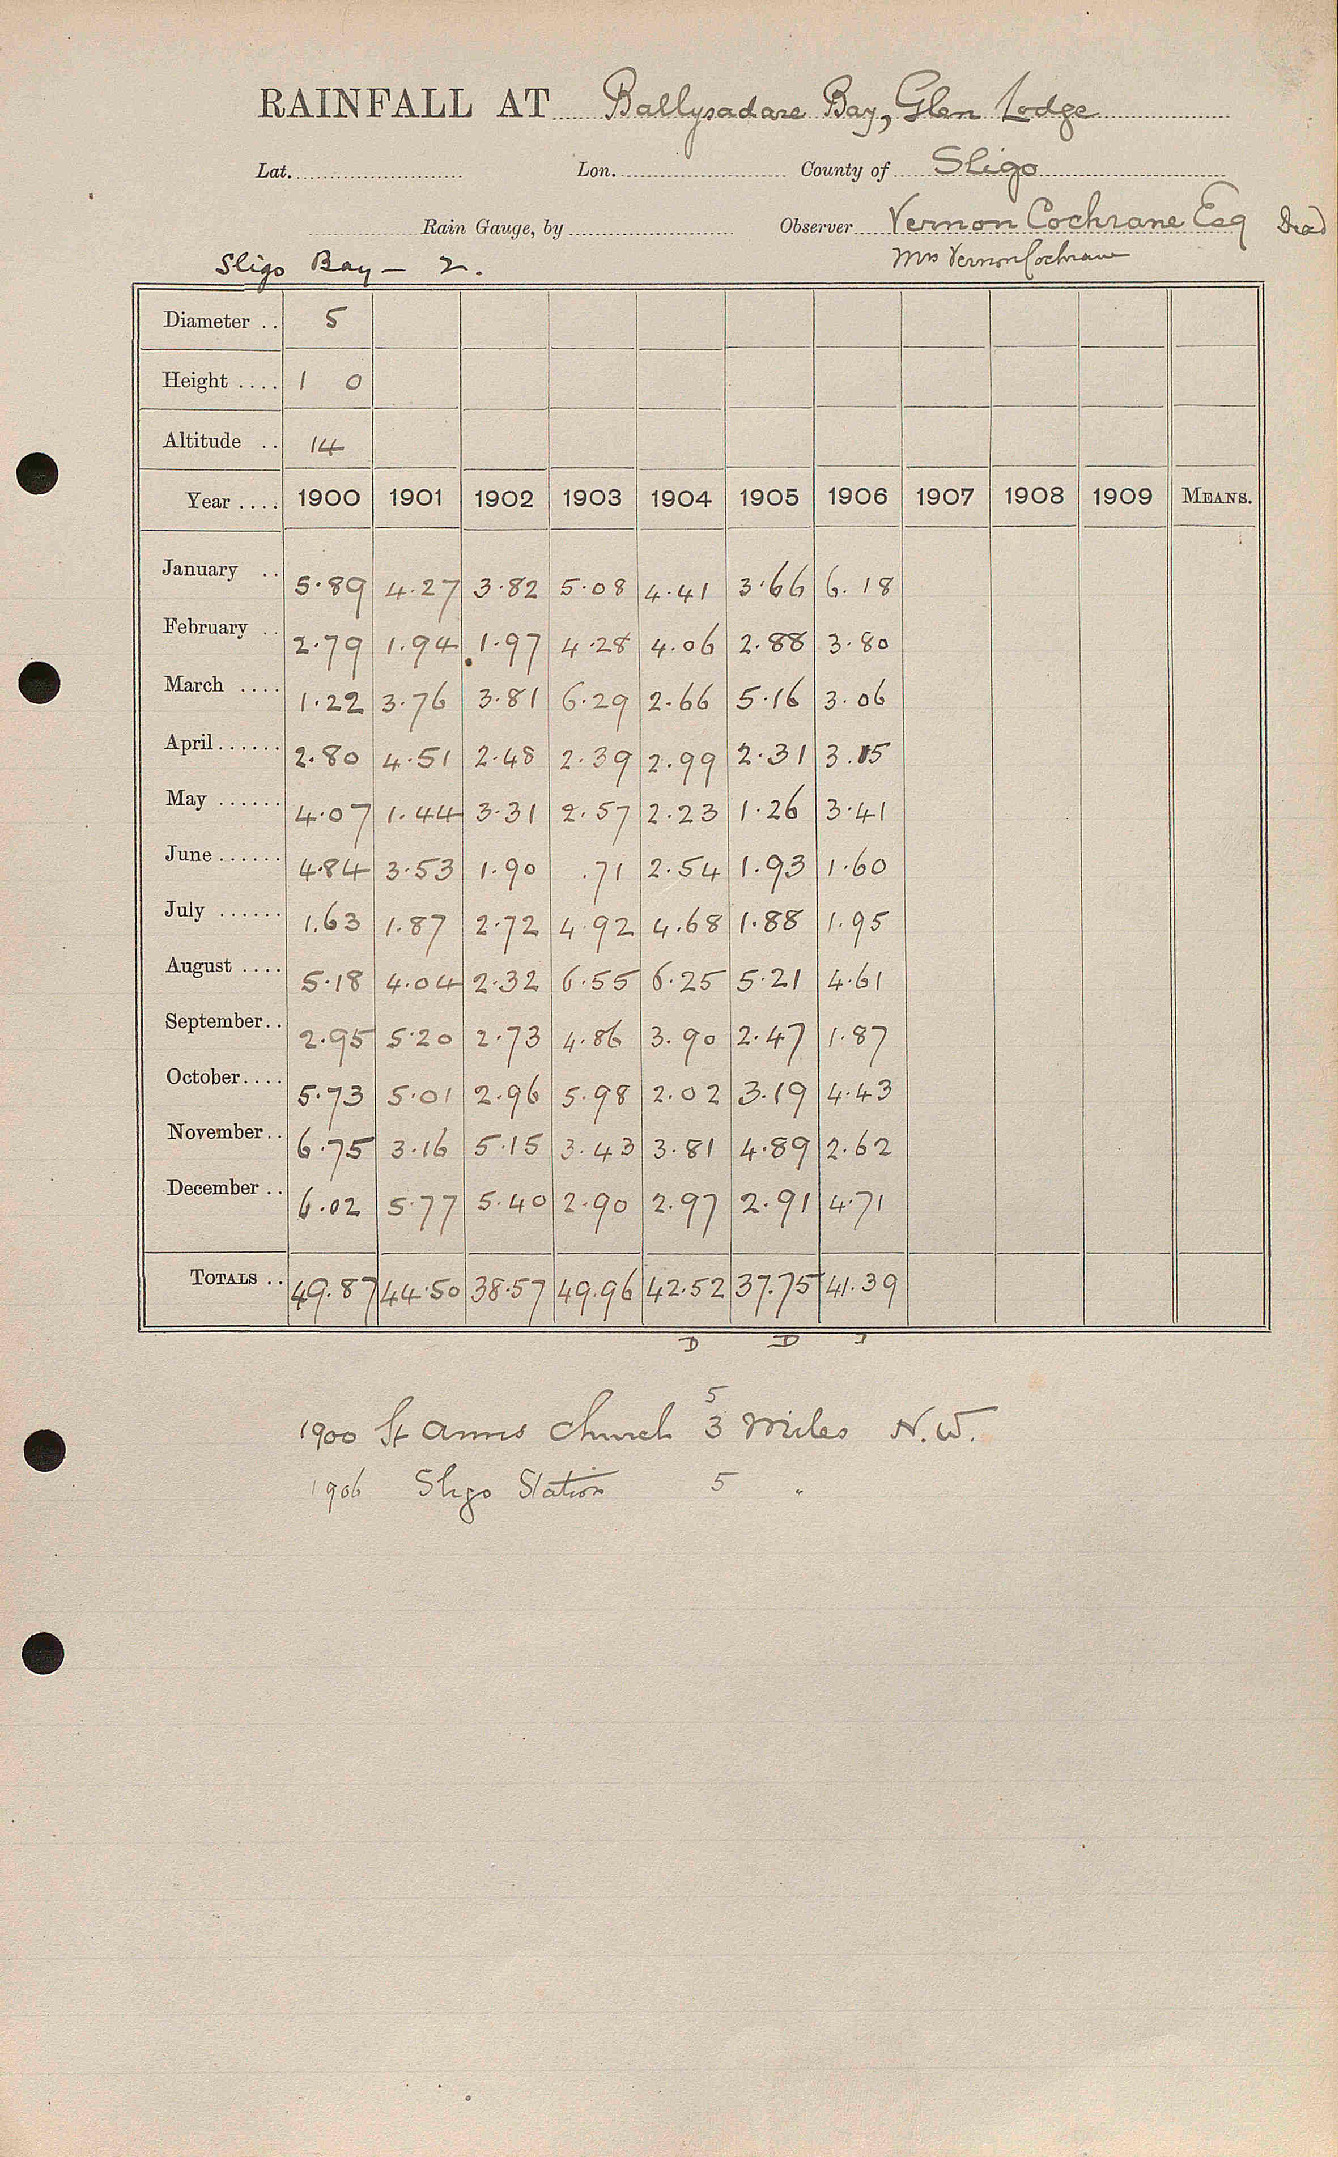 RAINFALL AT Ballysadare Bay, Glen Lodge
Lat. Lon. County of Sligo
Rain Gauge, by Observer Vernon Cochrane Esq Dead
Sligo Bay - 2. Mrs Vernon Cochrane
Diameter .. 5
Height .... 1 0
Altitude .. 14
Year .... 1900 1901 1902 1903 1904 1905 1906 1907 1908 1909 MEANS.
January .. 5.89 4.27 3.82 5.08 4.41 3.66 6.18
February .. 2.79 1.94 1.97 4.28 4.06 2.88 3.80
March .... 1.22 3.76 3.81 6.29 2.66 5.16 3.06
April ...... 2.80 4.51 2.48 2.39 2.99 2.31 3.15
May ...... 4.07 1.44 3.31 2.57 2.23 1.26 3.41
June ...... 4.84 3.53 1.90 .71 2.54 1.93 1.60
July ...... 1.63 1.87 2.72 4.92 4.68 1.88 1.95
August .... 5.18 4.04 2.32 6.55 6.25 5.21 4.61
September .. 2.95 5.20 2.73 4.86 3.90 2.47 1.87
October .... 5.73 5.01 2.96 5.98 2.02 3.19 4.43
November .. 6.75 3.16 5.15 3.43 3.81 4.89 2.62
December .. 6.02 5.77 5.40 2.90 2.97 2.91 4.71
TOTALS .. 49.87 44.50 38.57 49.96 42.52 37.75 41.39
D D
5
1900 St Anns Church 3 Miles N.W.
1906 Sligo Station 5 "